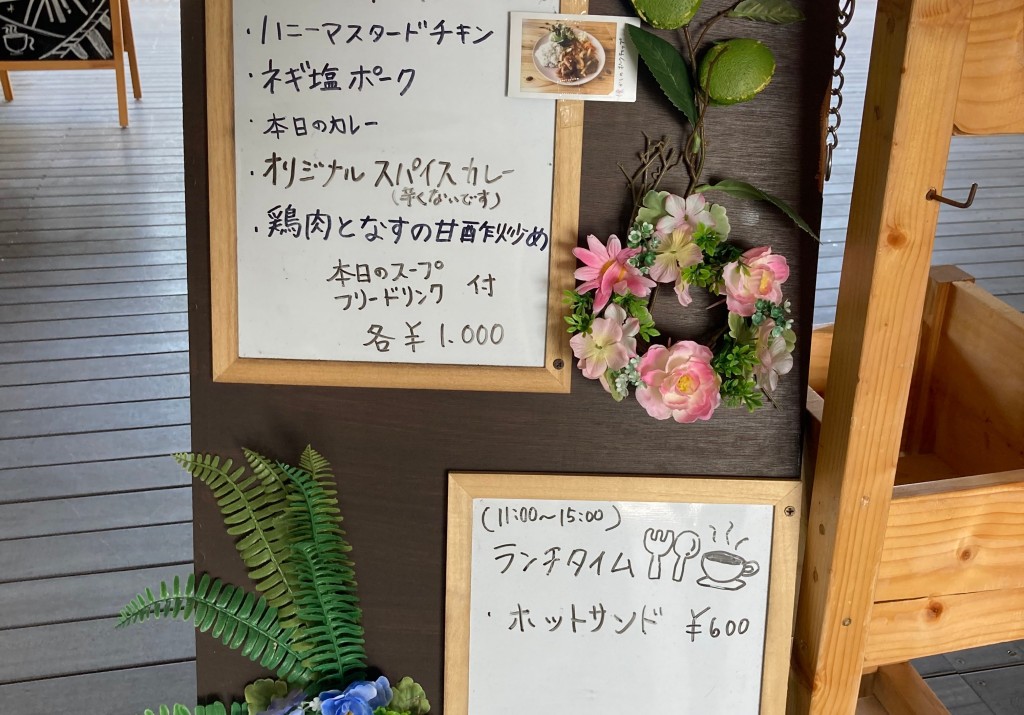 ・ハニーマスタードチキン
・ネギ塩ポーク
・本日のカレー
・オリジナルスパイスカレー
(辛くないです)
・鶏肉となすの甘酢炒め
本日のスープ
フリードリンク 付
各¥1.000
(11:00~15:00)
ランチタイム
・ホットサンド ¥600